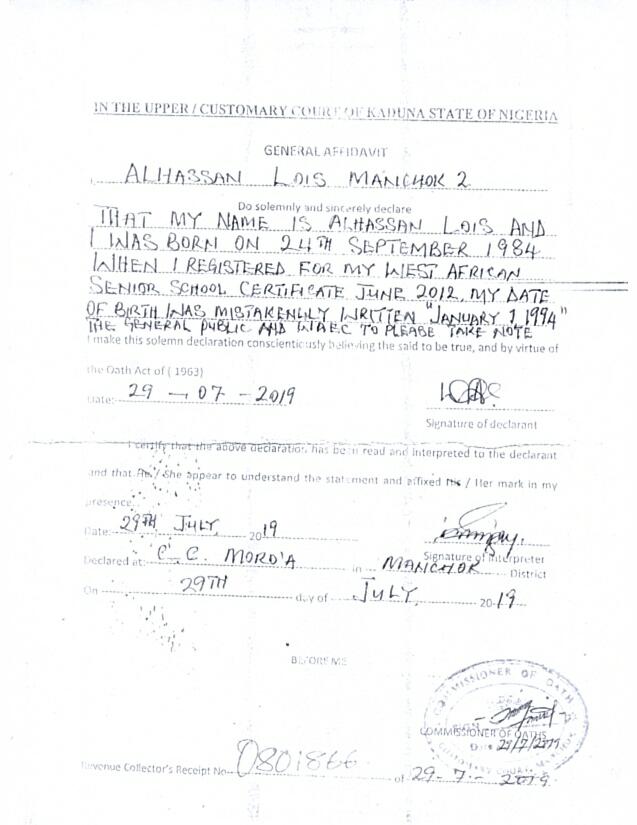 IN THE UPPER / CUSTOMARY COURT OF KADUNA STATE OF NIGERIA
GENERAL AFFIDAVIT
ALHASSAN LOIS MANCHOK 2
Do solemnly and sincerely declare
THAT MY NAME IS ALHASSAN LOIS AND
I WAS BORN ON 24TH SEPTEMBER 1984
WHEN I REGISTERED FOR MY WEST AFRICAN
SENIOR SCHOOL CERTIFICATE JUNE 2012, MY DATE
OF BIRTH WAS MISTAKENLY WRITTEN "JANUARY 1, 1994"
THE GENERAL PUBLIC AND WAEC TO PLEASE TAKE NOTE
I make this solemn declaration conscientiously believing the said to be true, and by virtue of
the Oath Act of (1963)
Date: 29 - 07 - 2019
Signature of declarant
I certify that the above declaration has been read and interpreted to the declarant
and that He / She appear to understand the statement and affixed His / Her mark in my
presence
Date: 29TH JULY, 2019
Signature of Interpreter
Declared at: C. C. MORO'A in MANCHOK District
On 29TH day of JULY, 2019
BEFORE ME
COMMISSIONER OF OATH
COMMISSIONER OF OATHS
Date 29/7/2019
Revenue Collector's Receipt No 0801866 of 29-7-2019